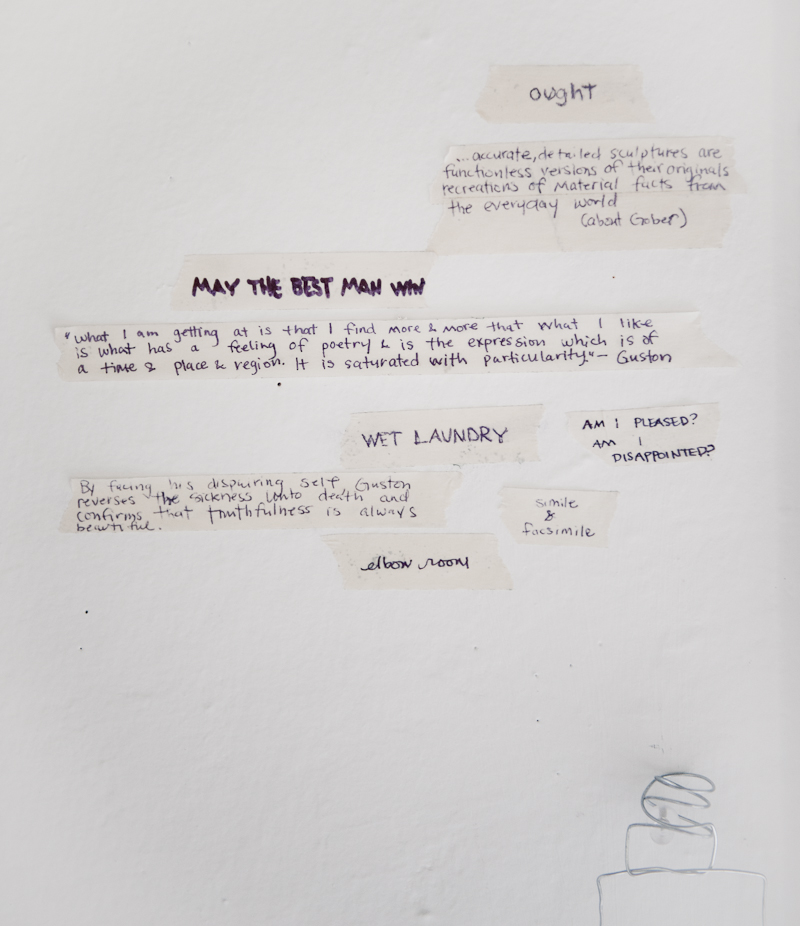 ought
...accurate, detailed sculptures are
functionless versions of their originals
recreations of material facts from
the everyday world
(about Gober)
MAY THE BEST MAN WIN
"What I am getting at is that I find more & more that what I like
is what has a feeling of poetry & is the expression which is of
a time & place & region. It is saturated with particularity." - Guston
WET LAUNDRY
AM I PLEASED?
AM I
DISAPPOINTED?
By facing his dispairing self, Guston
reverses the sickness unto death and
confirms that truthfulness is always
beautiful.
simile
&
facsimile
elbow room